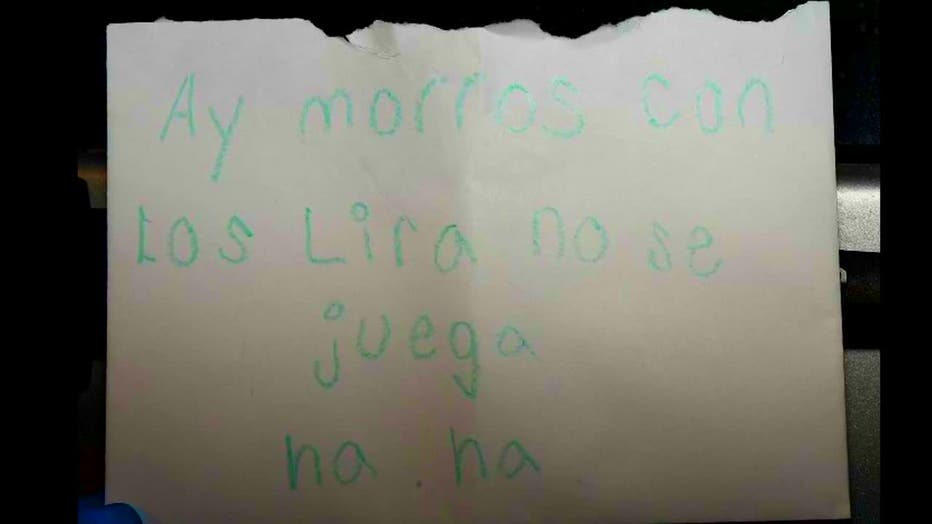 Ay morros con
Los Lira no se
juega
ha . ha